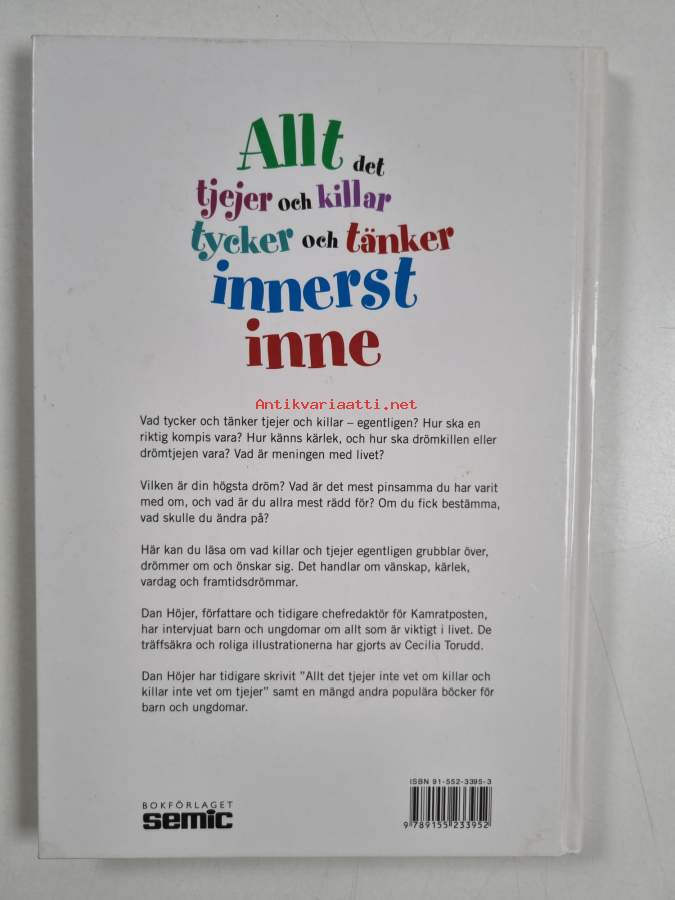 Allt det
tjejer och killar
tycker och tänker
innerst
inne
Antikvariaatti.net
Vad tycker och tänker tjejer och killar – egentligen? Hur ska en
riktig kompis vara? Hur känns kärlek, och hur ska drömkillen eller
drömtjejen vara? Vad är meningen med livet?
Vilken är din högsta dröm? Vad är det mest pinsamma du har varit
med om, och vad är du allra mest rädd för? Om du fick bestämma,
vad skulle du ändra på?
Här kan du läsa om vad killar och tjejer egentligen grubblar över,
drömmer om och önskar sig. Det handlar om vänskap, kärlek,
vardag och framtidsdrömmar.
Dan Höjer, författare och tidigare chefredaktör för Kamratposten,
har intervjuat barn och ungdomar om allt som är viktigt i livet. De
träffsäkra och roliga illustrationerna har gjorts av Cecilia Torudd.
Dan Höjer har tidigare skrivit "Allt det tjejer inte vet om killar och
killar inte vet om tjejer" samt en mängd andra populära böcker för
barn och ungdomar.
ISBN 91-552-3395-3
BOKFÖRLAGET
semic
9 789155 233952